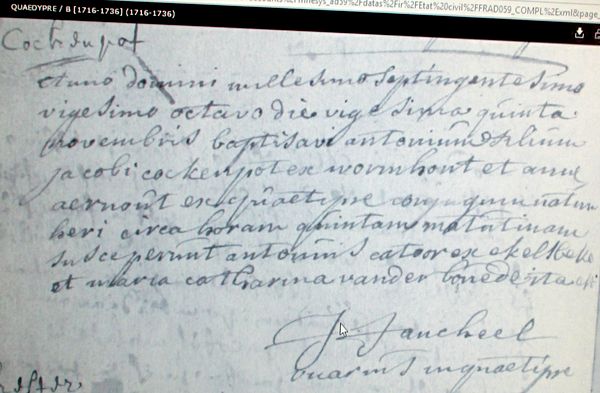 QUAEDYPRE / B [1716-1736] (1716-1736)
datas%2Fir%2FEtat civil%2FFRAD059_COMPL%2Exml&page_
anno domini millesimo septingentesimo
vigesimo octavo die vigesima quinta
novembris baptisavi antonium filium
jacobi cockenpot ex wormhout et annæ
aernout ex quaetipre conjugum natum
heri circa horam quintam matutinam
susceperunt antonius catoor ex ekelsbeke
et maria catharina vander
vuarins in quaetipre